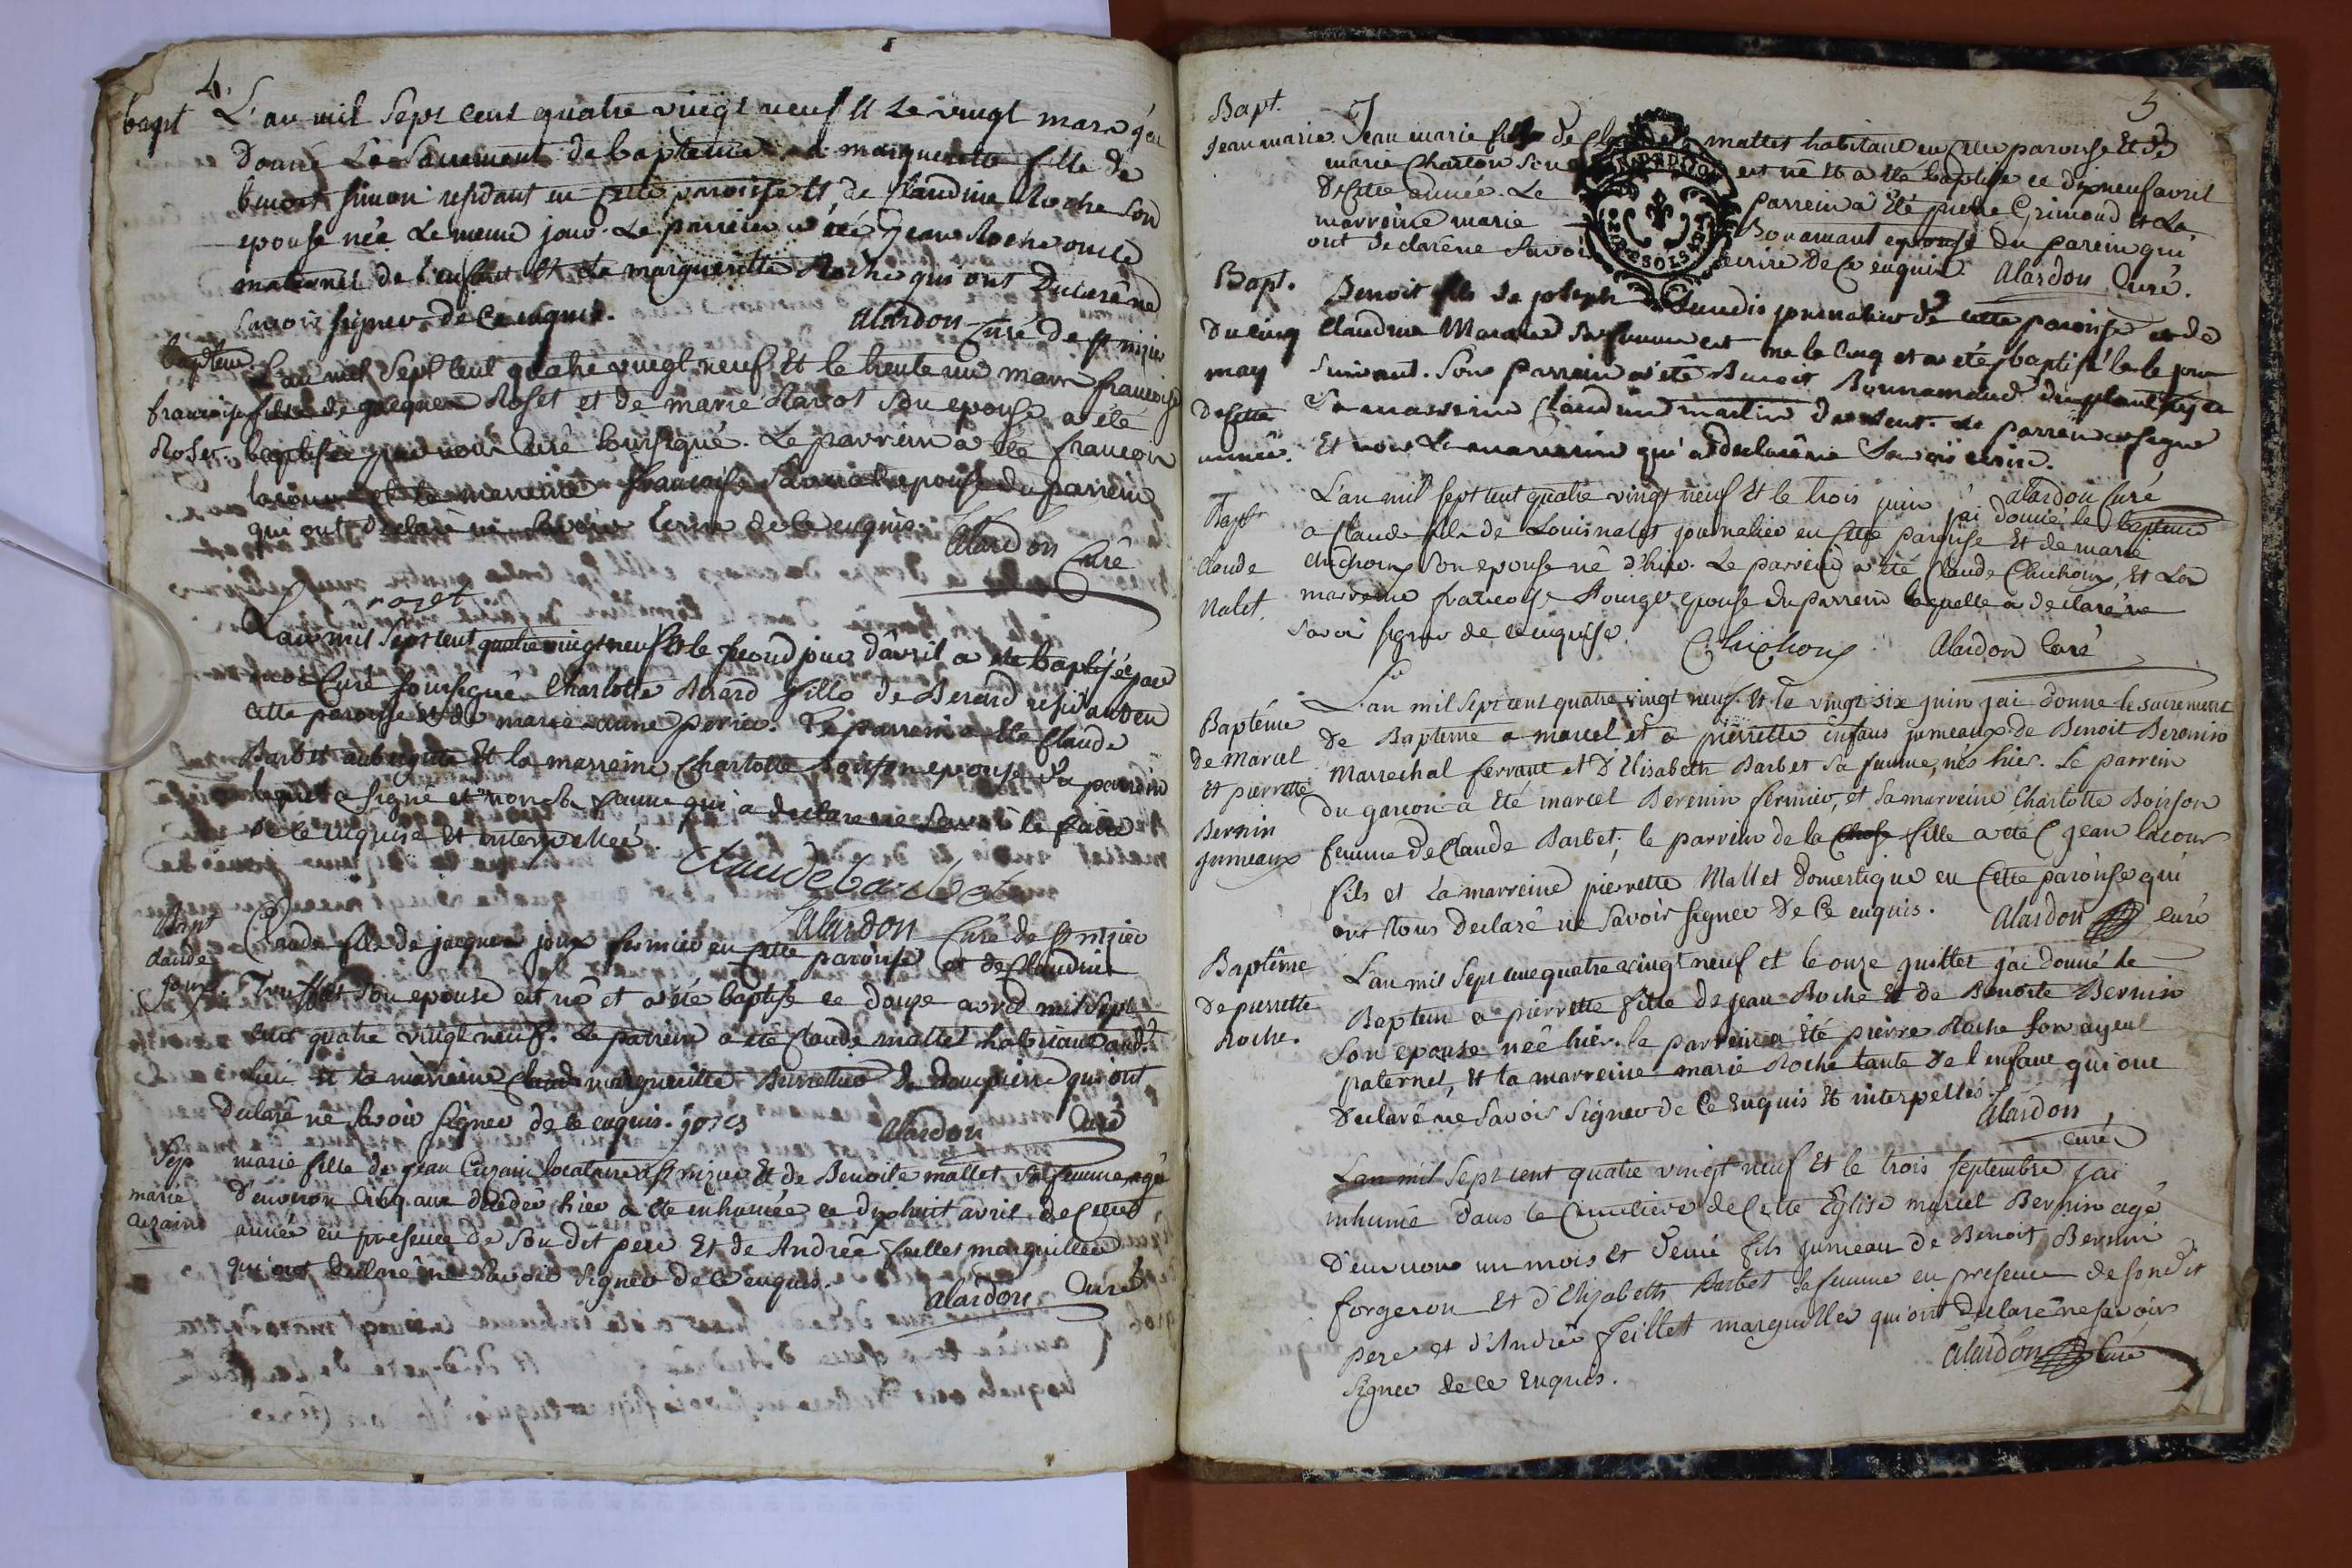 4.
bapt
L'an mil sept cent quatre vingt neuf et le vingt mars j'ai
donné le Sacrement de bapteme à marguerette fille de
benoit simon residant en cette paroisse et de Claudine Roche son
epouse née le meme jour. Le parrein a été jean Roche oncle
maternel de l'enfant et la margueritte Roche qui ont declaré ne
savoir signer de ce enquis.
alardon Curé de st mizier
bapteme
francoise
Roset
L'an mil sept cent quatre vingt neuf et le trente un mars francoise
fille de jacques Roset et de marie Ravot son epouse a été
baptisée par nous Curé soussigné. Le parrein a été francois
lacour et la marreine francoise epouse du parrein
qui ont declaré ne savoir ecrire de ce enquis.
alardon Curé
roset
L'an mil sept cent quatre vingt neuf et le second jour d'avril a été baptisée par
nous Curé soussigné Charlotte Berard fille de Berard residant en
cette paroisse et de marie anne perier. Le parrein a été Claude
Barbet aubergiste et la marreine Charlotte Boisson epouse du parrein
lequel a signé et non sa femme qui a declaré ne savoir le faire
de ce enquise et interpellée.
Claude barbet
alardon Curé de st mizier
Bapt
Claude
joux.
Claude fils de jacques joux fermier en cette paroisse et de Claudine
son epouse est né et a été baptisé ce douze avril mil sept
cent quatre vingt neuf. Le parrein a été Claude mallet habitant audt.
lieu et la marreine margueritte de dompierre qui ont
declaré ne savoir signer de ce enquis.
alardon Curé
Sep
marie
Cuzain
marie fille de jean Cuzain locataire a st mizier et de Benoite mallet sa femme agé
d'environ cinq ans decedée hier a été inhumée ce dix huit avril de cette
année en presence de son dit pere et de André feuillet marguillier
qui ont declaré ne savoir signer de ce enquis.
alardon Curé
5
Bapt.
Jean marie.
Jean marie fils de mallet habitant en cette paroisse et de
marie Charton son est né et a été baptisé ce dix neuf avril
de cette année. Le parrein a été pierre Grimoud et la
marreine marie Bonamant epouse du parein qui
ont declaré ne savoir ecrire de ce enquis. Alardon Curé.
Bapt.
Du cinq
may
de cette
année.
Benoit fils de joseph journalier de cette paroisse et de
Claudine sa femme est né le cinq et a été baptisé le jour
suivant. Son parrein a été Benoit Bonnamand
Sa marreine Claudine martin le parrein a signé
Et non la marreine qui a declaré ne savoir ecrire.
alardon Curé
Bapt
Claude
Nalet.
L'an mil sept cent quatre vingt neuf et le trois juin j'ai donné le bapteme
a Claude fils de Louis nalet journalier en cette paroisse et de marie
Chichoux son epouse né d'hier. Le parrein a été Claude Chichoux, et la
marreine francoise epouse du parrein laquelle a declaré ne
savoir signer de ce enquise.
Chichoux Alardon Curé
Baptême
de Marcel
et pierrette
Bernin
jumeaux
L'an mil sept cent quatre vingt neuf et le vingt six juin j'ai donné le sacrement
de Bapteme a marcel et a pierrette enfans jumeaux de Benoit Berenin
Marrechal ferrant et d'Elisabeth Barbet sa femme, nés hier. Le parrein
du garcon a été marcel Berenin fermier, et sa marreine Charlotte Boisson
femme de Claude Barbet; le parrein de la fille a été jean lacour
fils et la marreine pierrette Mallet domestique en cette paroisse qui
ont tous declaré ne savoir signer de ce enquis.
Alardon curé
Baptême
de pierrette
Roche.
L'an mil sept cent quatre vingt neuf et le onze juillet j'ai donné le
Bapteme a pierrette fille de jean Roche et de Benoite Bernin
son epouse née hier. le parrein a été pierre Roche son ayeul
paternel, et la marreine marie Roche tante de l'enfant qui ont
declaré ne savoir signer de ce enquis et interpellés.
alardon
curé
L'an mil sept cent quatre vingt neuf et le trois septembre j'ai
inhumé dans le Cimetiere de cette Eglise marcel Bernin agé
d'environ un mois et demi fils jumeau de Benoit Bernin
forgeron et d'Elisabeth Barbet sa femme en presence de son dit
pere et d'André feillet marguillier qui ont declaré ne savoir
signer de ce enquis.
alardon Curé